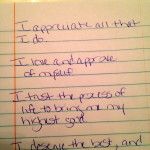 I appreciate all that
I do.
I love and approve
of myself.
I trust the process of
life to bring me my
highest good.
I deserve the best, and